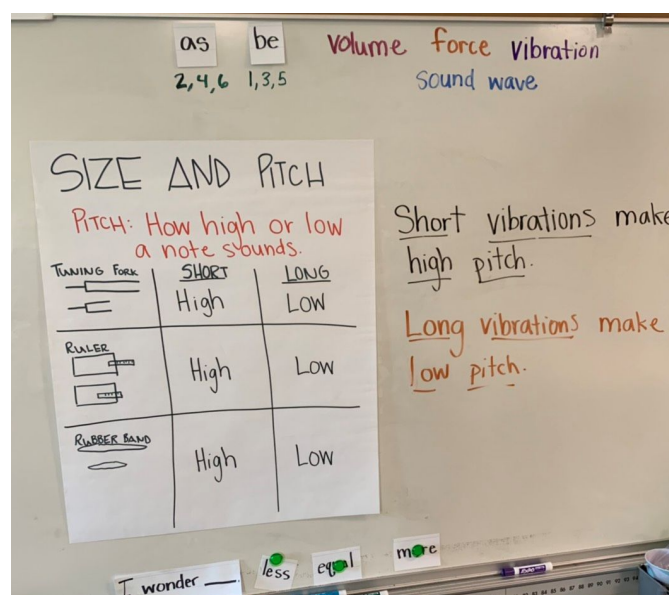 as be volume force vibration
2,4,6 1,3,5 sound wave
SIZE AND PITCH
PITCH: How high or low
a note sounds.
TUNING FORK SHORT LONG
High Low
RULER
High Low
RUBBER BAND
High Low
Short vibrations make
high pitch.
Long vibrations make
low pitch.
I wonder
less
equal
more